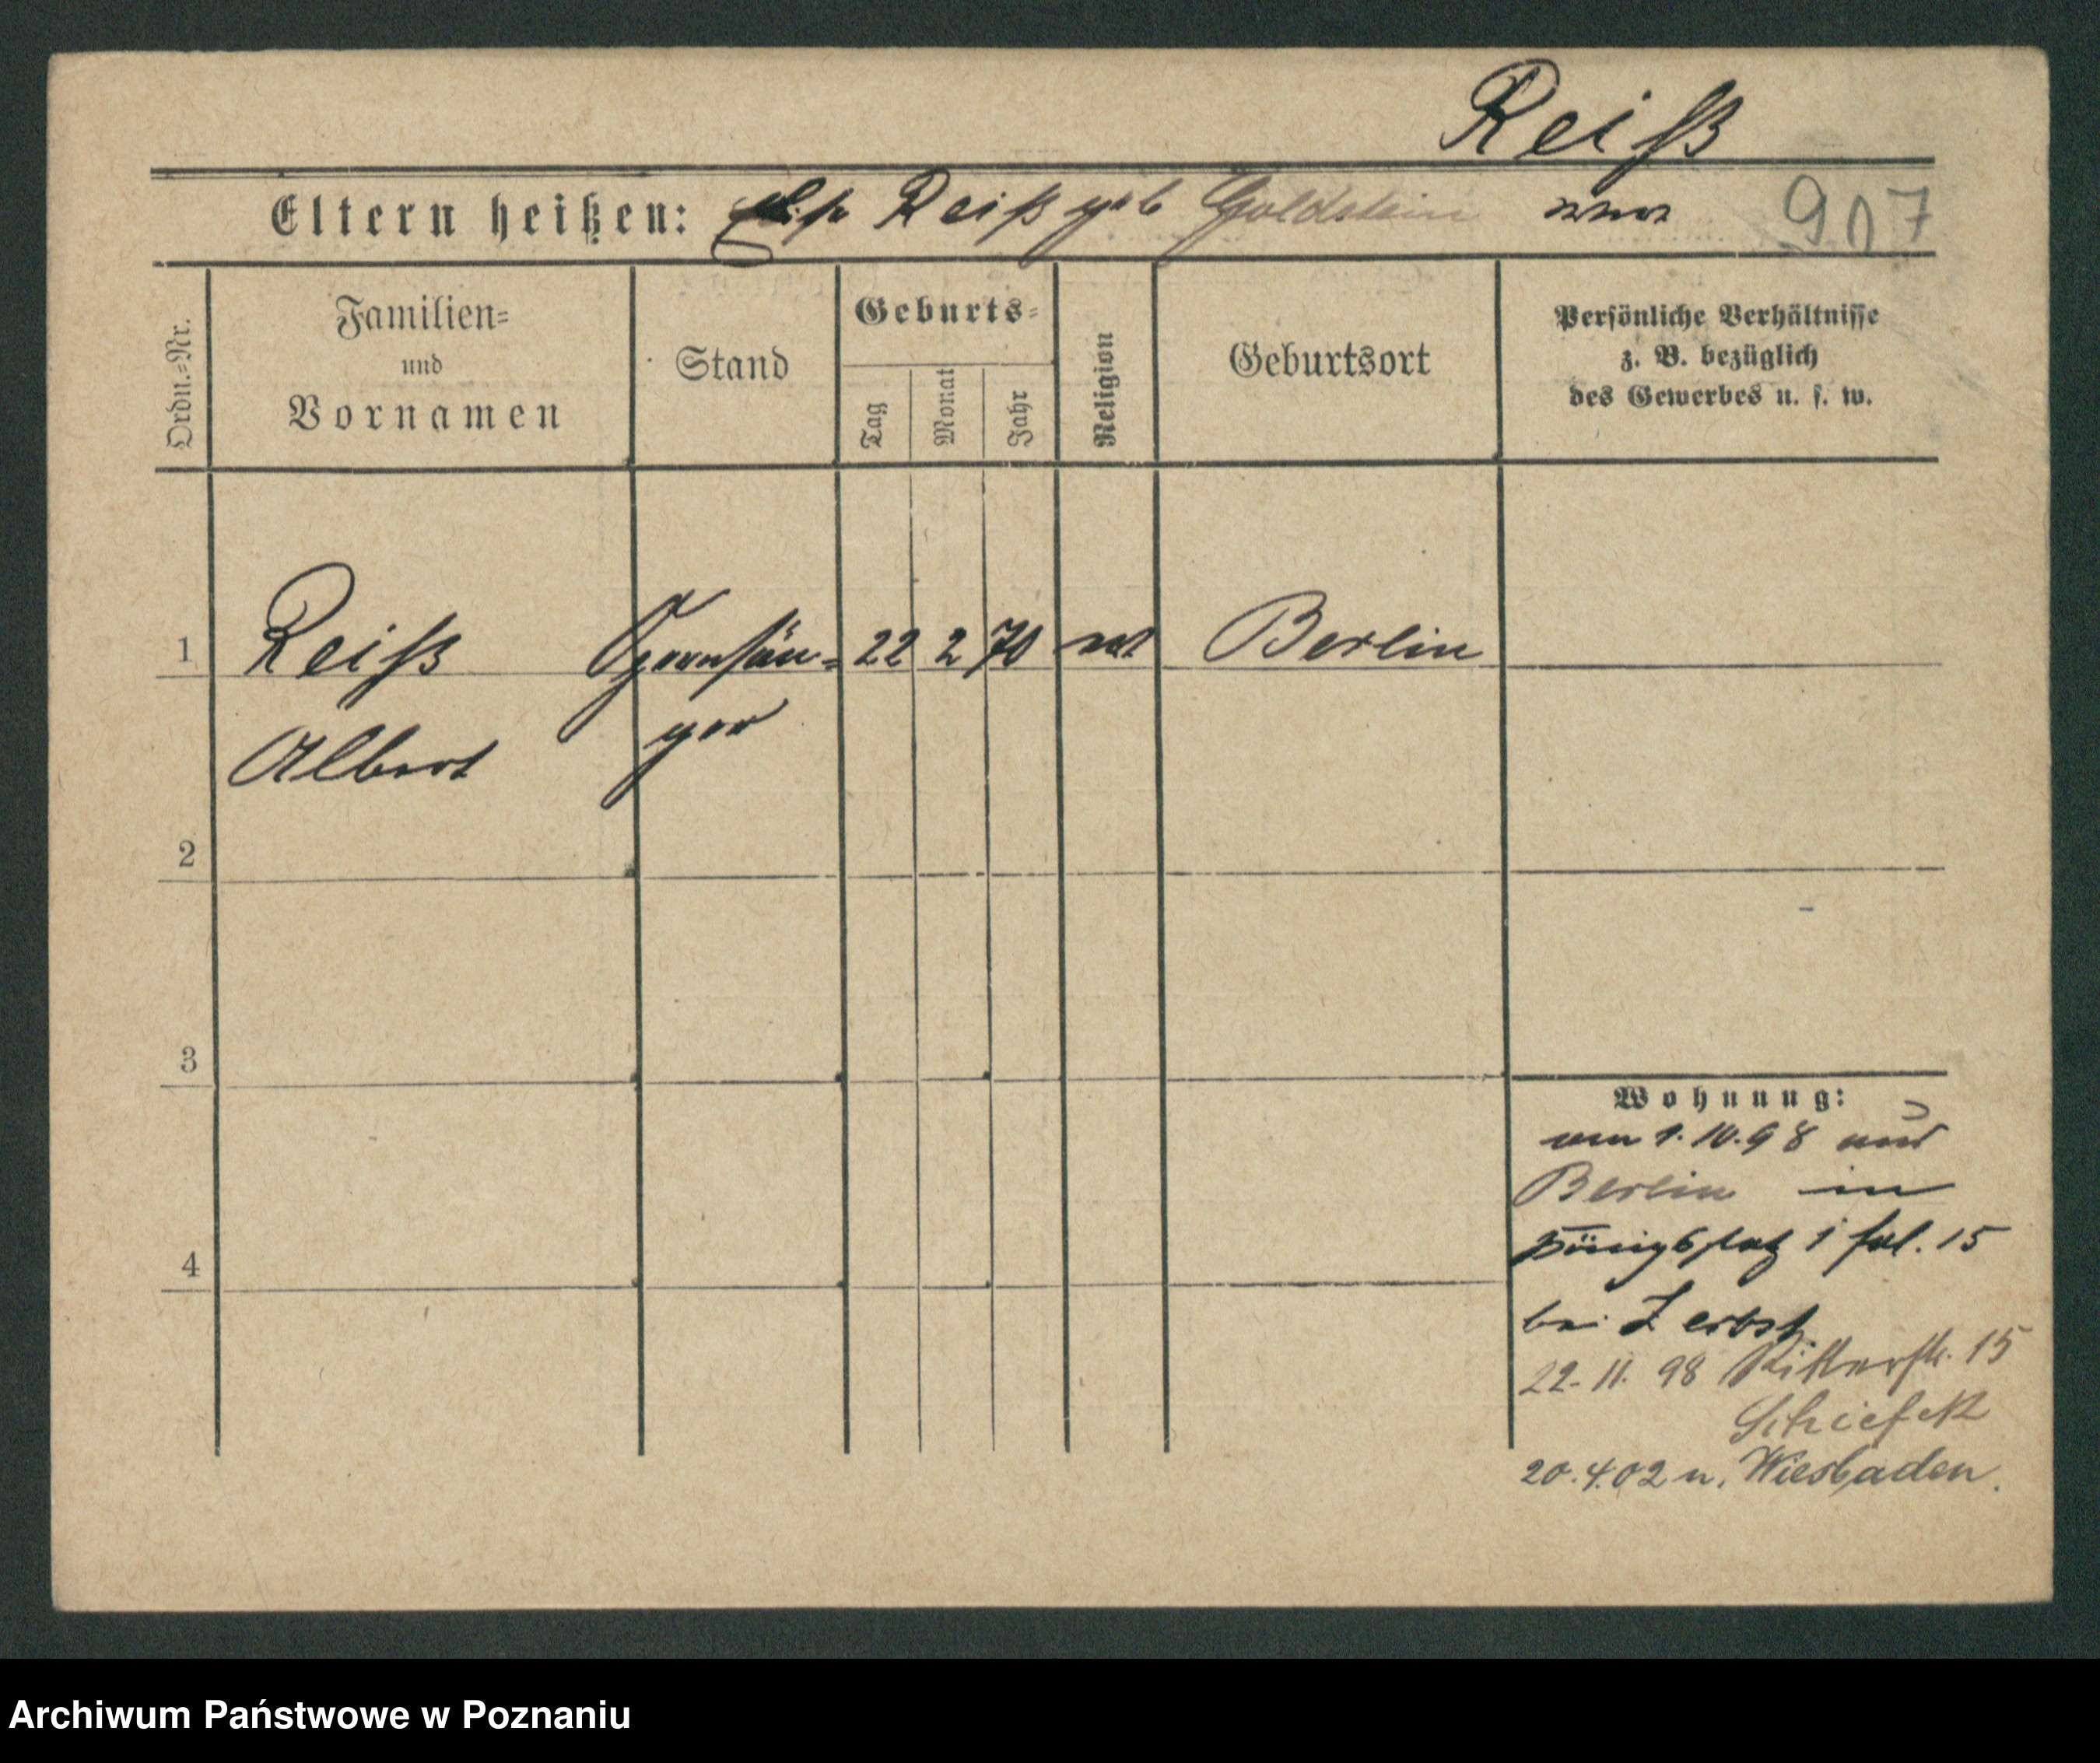 Reiß
Eltern heißen: Reiß geb Goldstein 907
Ordn.-Nr.
Familien-
und
Vornamen
Stand
Geburts-
Tag
Monat
Jahr
Religion
Geburtsort
Persönliche Verhältnisse
z. B. bezüglich
des Gewerbes u. s. w.
1 Reiß Opernsän- 22 2 70 Berlin
Albert ger
2
3
4
Wohnung:
1.10.98 aus
Berlin in
Königsplatz 1 15
bei Zerbst
22.11.98 Ritterstr. 15
20.4.02 n. Wiesbaden.
Archiwum Państwowe w Poznaniu